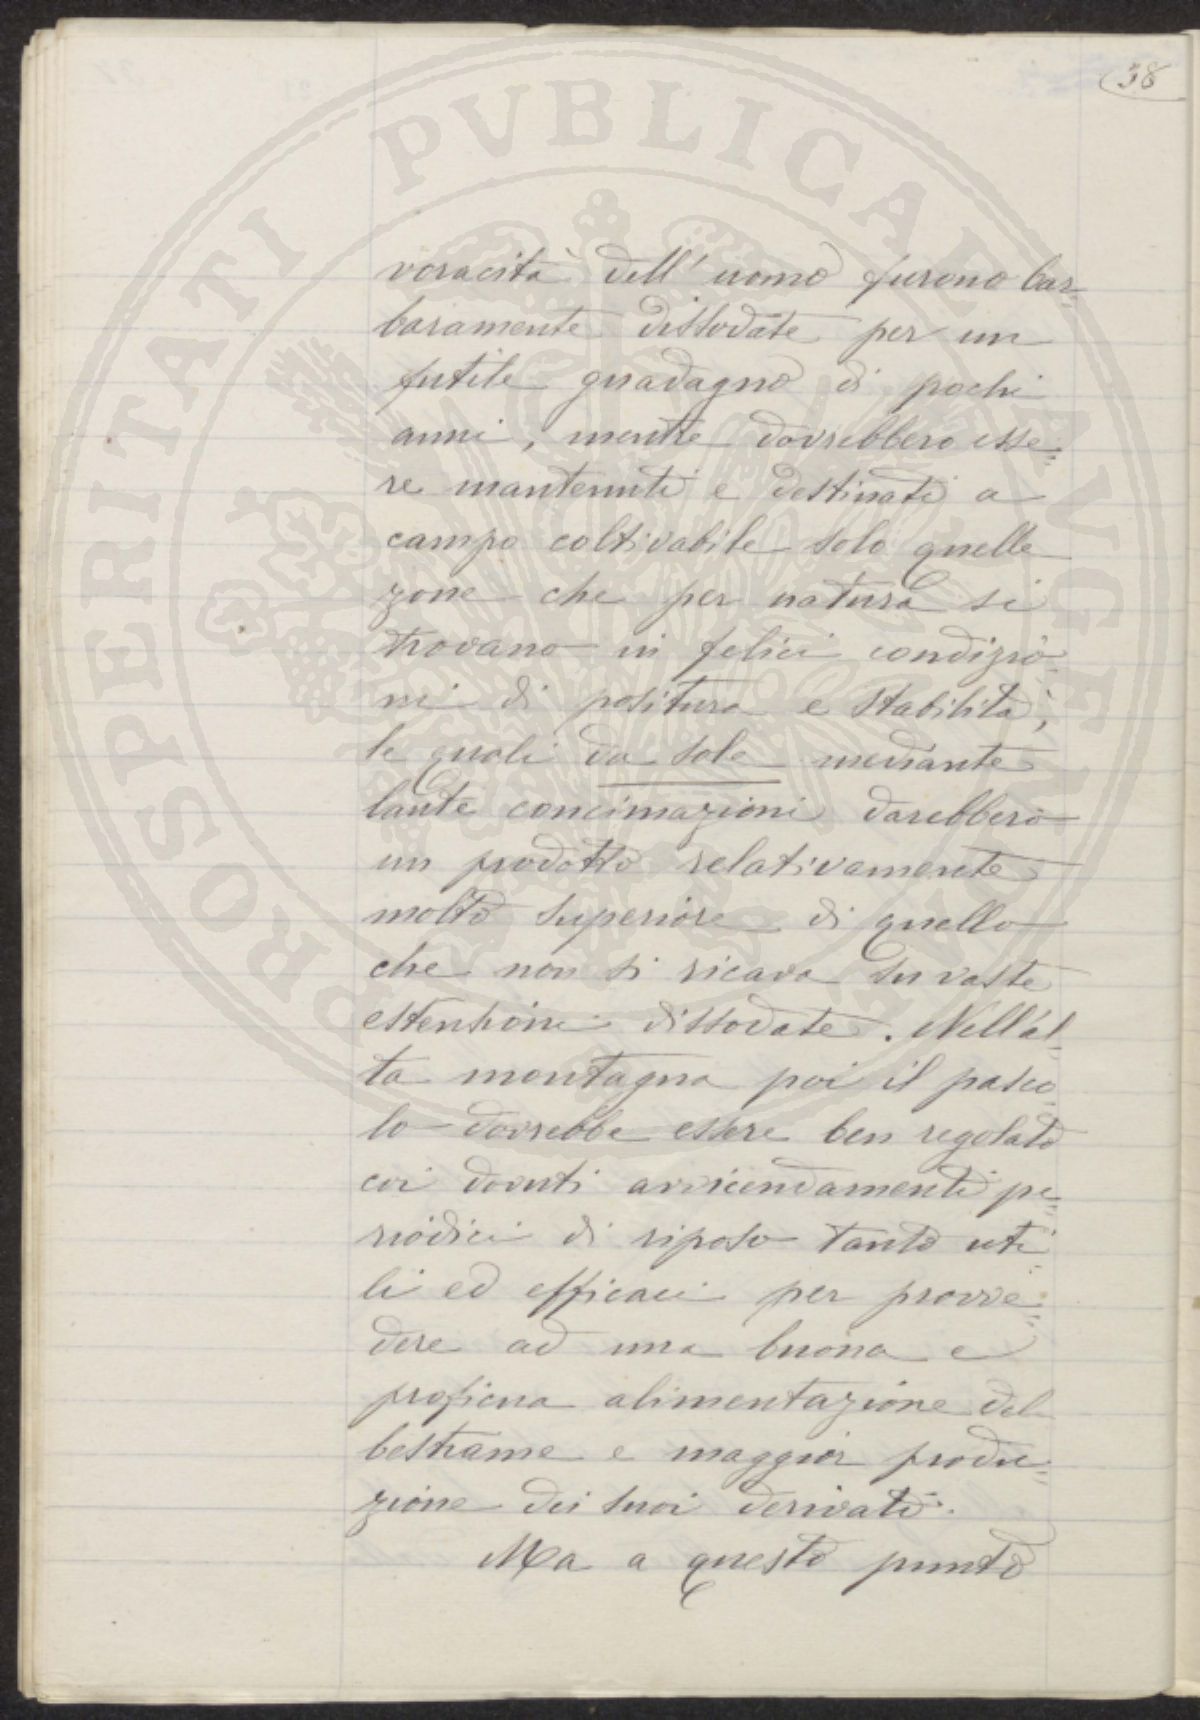 38
PROSPERITATI PVBLICAE AVGENDAE
voracità dell'uomo furono bar=
baramente dissodate per un
futile guadagno di pochi
anni, mentre dovrebbero esse=
re mantenuti e destinati a
campo coltivabile solo quelle
zone che per natura si
trovano in felici condizio=
ni di positura e stabilità,
le quali da sole mediante
laute concimazioni darebbero
un prodotto relativamente
molto superiore di quello
che non si ricava su vaste
estensioni dissodate. Nell'al=
ta montagna poi il pasco=
lo dovrebbe essere ben regolato
coi dovuti avvicendamenti pe=
riodici di riposo tanto uti=
li ed efficaci per provve=
dere ad una buona e
proficua alimentazione del
bestiame e maggior produ=
zione dei suoi derivati.
Ma a questo punto